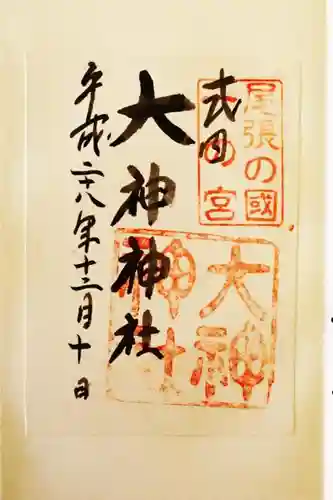 尾張の國
一の宮
式内
大神神社
大神
神社
平成二十八年十二月十日